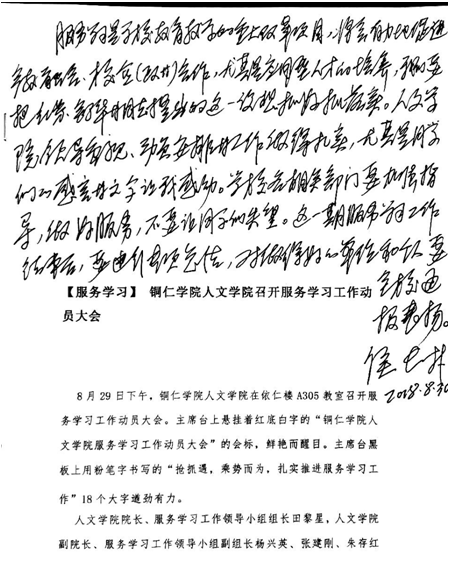 服务学习是学校教育教学的重大改革项目，将会有力地促进
学校
校
尤其是应用型人才的培养，我们要
把
这一
抓好抓落实。人文学
院领导重视、动员安排工作做得扎实，尤其是同学
们的感言文字让我感动。学校各相关部门要加强指
导，做好服务，不要让同学们失望。这一期服务学习工作
结束后，要进行专项总结，对做得好的单位和个人要
全校通
报表扬。
侯长林
2018.8.30
【服务学习】 铜仁学院人文学院召开服务学习工作动
员大会
8 月 29 日下午，铜仁学院人文学院在依仁楼 A305 教室召开服
务学习工作动员大会。主席台上悬挂着红底白字的“铜仁学院人
文学院服务学习工作动员大会”的会标，鲜艳而醒目。主席台黑
板上用粉笔字书写的“抢抓遇，乘势而为，扎实推进服务学习工
作”18 个大字遒劲有力。
人文学院院长、服务学习工作领导小组组长田黎星，人文学院
副院长、服务学习工作领导小组副组长杨兴英、张建刚、朱存红